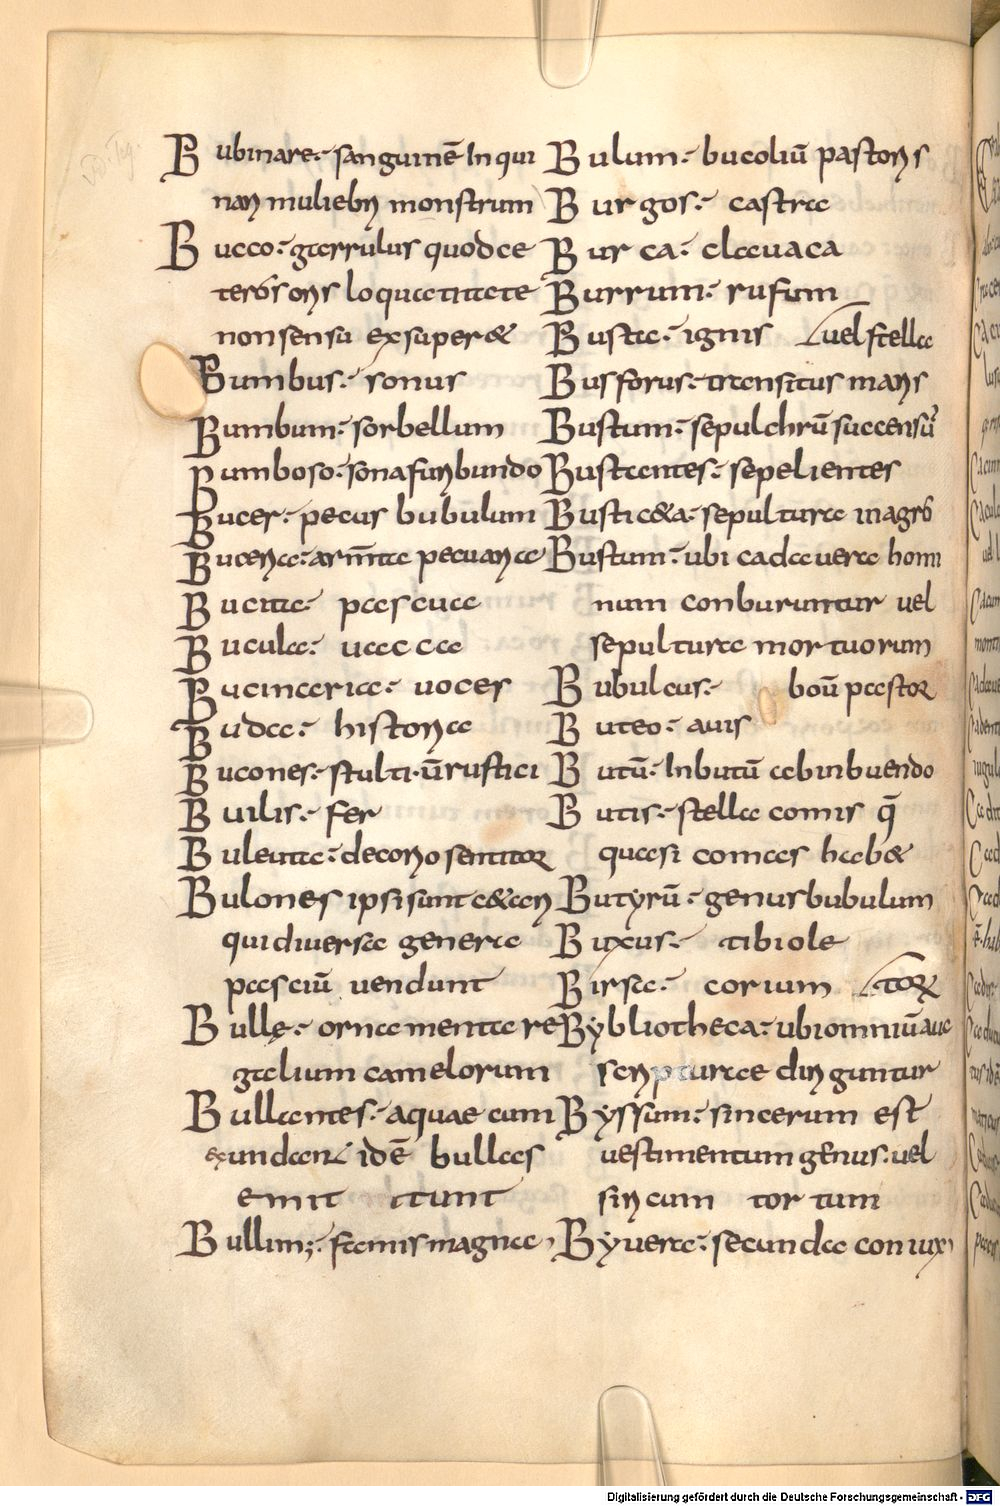 Bubinare· sanguinē Inqui
nari muliebri monstrum
Bucco· garrulus quodce
teros oris loquacitate
non sensu exsuperet
Bumbus· sonus
Bumbum· sorbellum
Bumboso· sonafuribundo
Bucer· pecus bubulum
Bucerie· arm̄ta pecuaria
Bucitae· pascuae
Bucula· uacca
Bucinarie· uoces
Buda· historia
Bucones· stulti· ūrustici
Builis· fer
Buleutae· decorio
Bulones ipsi sunt
qui diuersa genera
pasciū uendunt
Bulle· ornamenta re
galium camelorum
Bullantes· aquae cum
idē bullas
emittunt
magna
Bulum· bucoliū pastoris
Burgos· castra
Burca· clauaca
Burrum· rufum
Busta· ignis uel stella
Busforus· transitus maris
Bustum· sepulchrū succensū
Bustantes· sepelientes
Busticeta· sepulturae inagro
Bustum· ubi cadauera homi
num conburuntur uel
sepultura mortuorum
Bubulcus· boū pastor
Buteo· auis
Butū· Inbutū abinbuendo
Butis· stella comis q̄
quasi comas habet
Butyrū· genus bubulum
Buxus· tibiole
Birsa· corium
Bybliotheca· ubiomniū auc torꝝ
scripturae diriguntur
Byssum· sincerum est
uestimentum genus· uel
siricum tortum
Byuera· secunda coniux
Digitalisierung gefördert durch die Deutsche Forschungsgemeinschaft - DFG